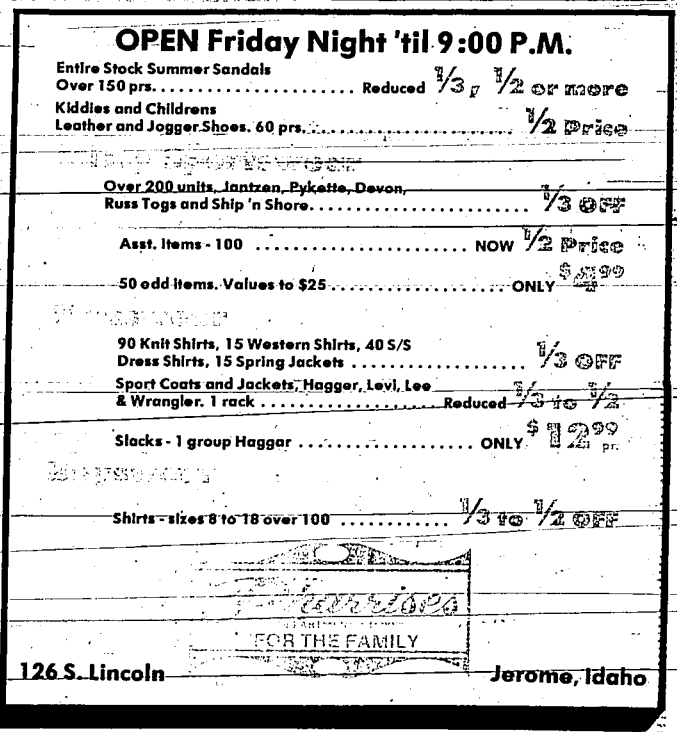 OPEN Friday Night 'til 9:00 P.M.
Entire Stock Summer Sandals
Over 150 prs. ..................... Reduced 1/3, 1/2 or more
Kiddies and Childrens
Leather and Jogger Shoes. 60 prs. ......................... 1/2 Price
Over 200 units, Jantzen, Pykette, Devon,
Russ Togs and Ship 'n Shore. ...................... 1/3 OFF
Asst. Items - 100 ...................... NOW 1/2 Price
50 odd items. Values to $25 .................... ONLY $4.99
90 Knit Shirts, 15 Western Shirts, 40 S/S
Dress Shirts, 15 Spring Jackets .................. 1/3 OFF
Sport Coats and Jackets, Hagger, Levi, Lee
& Wrangler. 1 rack .................. Reduced 1/3 to 1/2
Slacks - 1 group Haggar .................. ONLY $12.99 pr.
Shirts - sizes 8 to 18 over 100 ............ 1/3 to 1/2 OFF
FOR THE FAMILY
126 S. Lincoln Jerome, Idaho